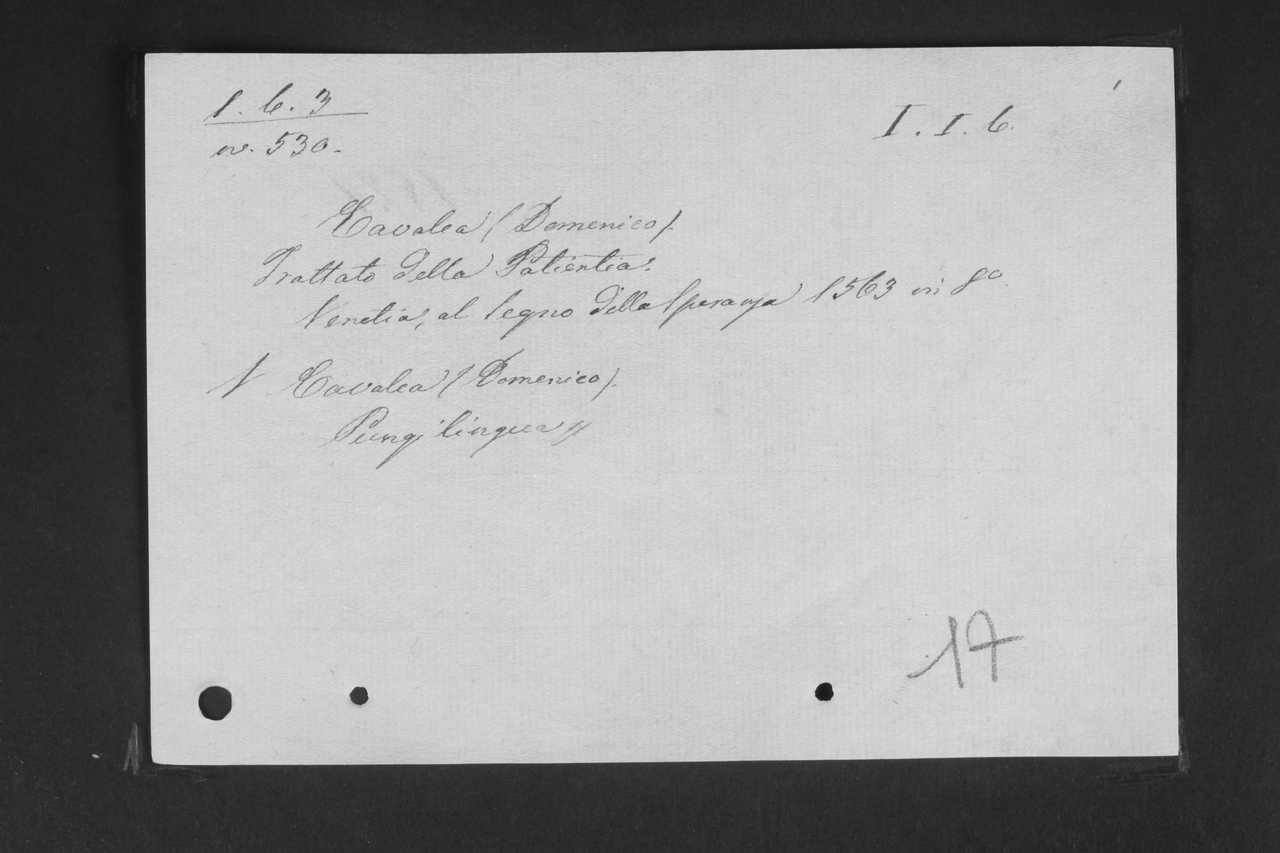 1. 6. 3
nv. 530.
I. I. 6.
Cavalca (Domenico).
Trattato della Patientia.
Venetia, al segno della Speranza 1563 in 8o.
Cavalca (Domenico).
Pungi lingua
17